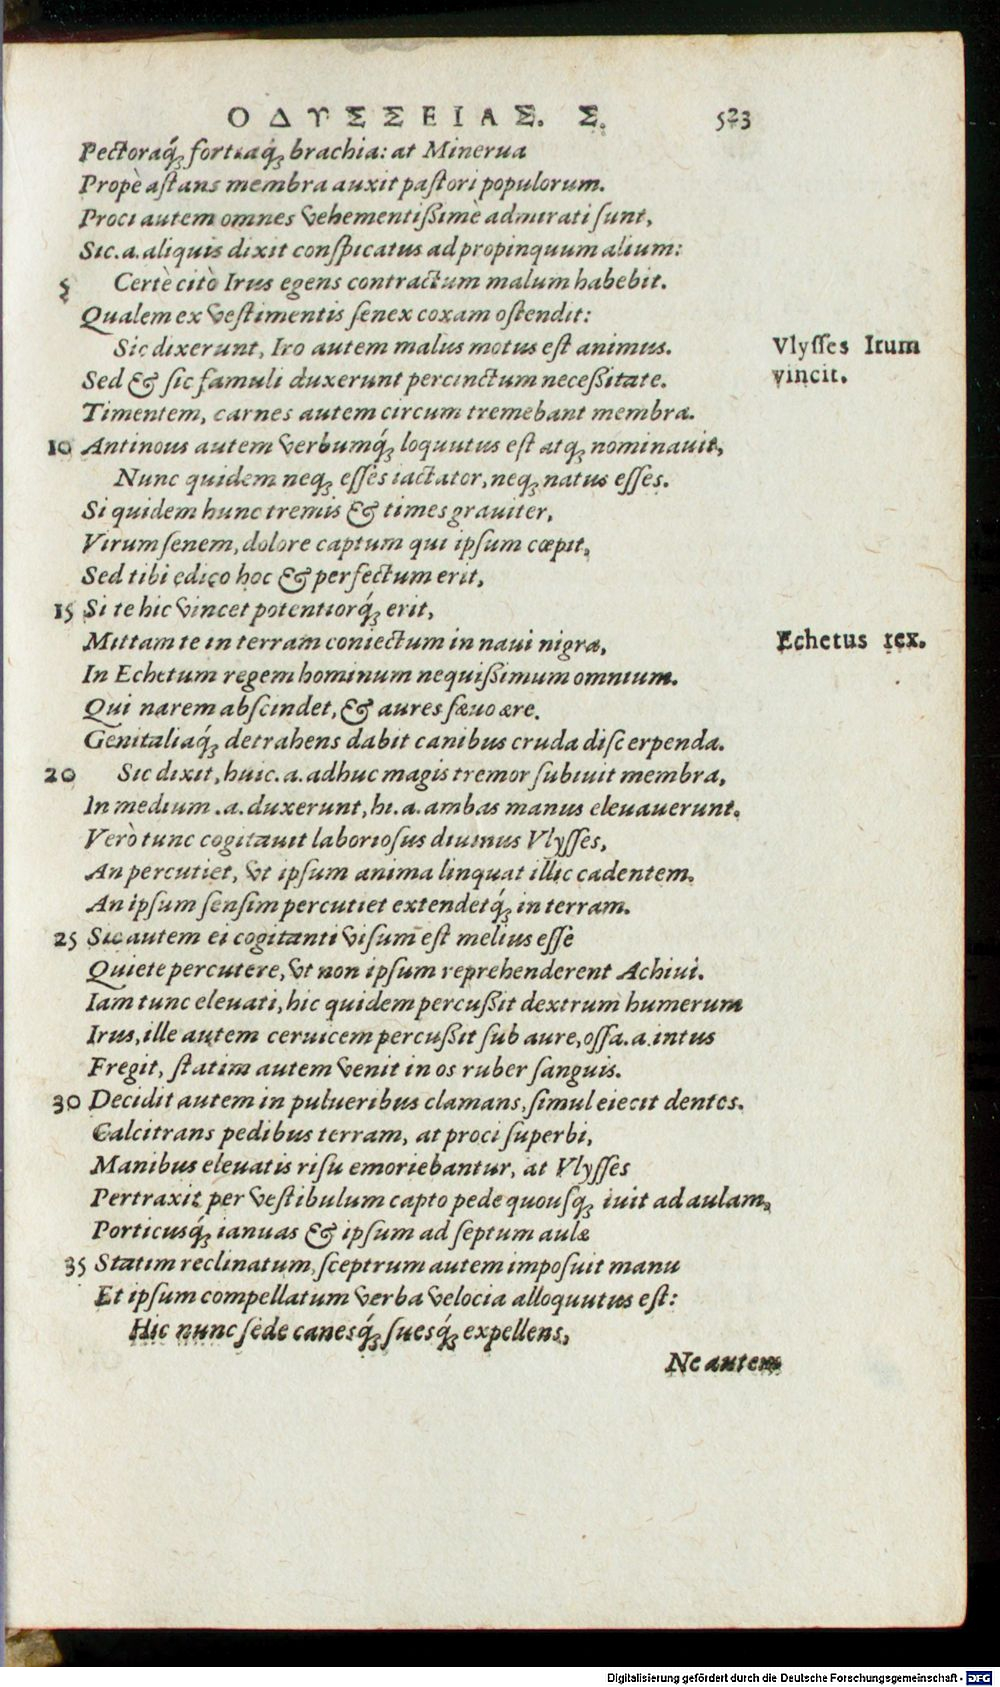 ΟΔΥΣΣΕΙΑΣ. Σ. 523
Pectoraq́ꝫ fortiaq́ꝫ brachia: at Minerua
Propè aſtans membra auxit paſtori populorum.
Proci autem omnes vehementißimè admirati ſunt,
Sic .a. aliquis dixit conſpicatus ad propinquum alium:
5 Certè citò Irus egens contractum malum habebit.
Qualem ex veſtimentis ſenex coxam oſtendit:
Sic dixerunt, Iro autem malus motus eſt animus.
Vlyſſes Irum
vincit.
Sed & ſic famuli duxerunt percinctum neceßitate.
Timentem, carnes autem circum tremebant membra.
10 Antinous autem verbumq́ꝫ loquutus eſt atqꝫ nominauit,
Nunc quidem neqꝫ eſſes iactator, neqꝫ natus eſſes.
Si quidem hunc tremis & times grauiter,
Virum ſenem, dolore captum qui ipſum cœpit,
Sed tibi edico hoc & perfectum erit,
15 Si te hic vincet potentiorq́ꝫ erit,
Mittam te in terram coniectum in naui nigra,
Echetus rex.
In Echetum regem hominum nequißimum omnium.
Qui narem abſcindet, & aures ſæuo ære.
Genitaliaq́ꝫ detrahens dabit canibus cruda diſcerpenda.
20 Sic dixit, huic .a. adhuc magis tremor ſubiuit membra,
In medium .a. duxerunt, hi .a. ambas manus eleuauerunt.
Verò tunc cogitauit laborioſus diuinus Vlyſſes,
An percutiet, vt ipſum anima linquat illic cadentem.
An ipſum ſenſim percutiet extendetq́ꝫ in terram.
25 Sic autem ei cogitanti viſum eſt melius eſſe
Quiete percutere, vt non ipſum reprehenderent Achiui.
Iam tunc eleuati, hic quidem percußit dextrum humerum
Irus, ille autem ceruicem percußit ſub aure, oſſa .a. intus
Fregit, ſtatim autem venit in os ruber ſanguis.
30 Decidit autem in pulueribus clamans, ſimul eiecit dentes.
Calcitrans pedibus terram, at proci ſuperbi,
Manibus eleuatis riſu emoriebantur, at Vlyſſes
Pertraxit per veſtibulum capto pede quouſqꝫ iuit ad aulam,
Porticusq́ꝫ ianuas & ipſum ad ſeptum aulæ
35 Statim reclinatum, ſceptrum autem impoſuit manu
Et ipſum compellatum verba velocia alloquutus eſt:
Hic nunc ſede canesq́ꝫ ſuesq́ꝫ expellens,
Ne autem
Digitalisierung gefördert durch die Deutsche Forschungsgemeinschaft - DFG